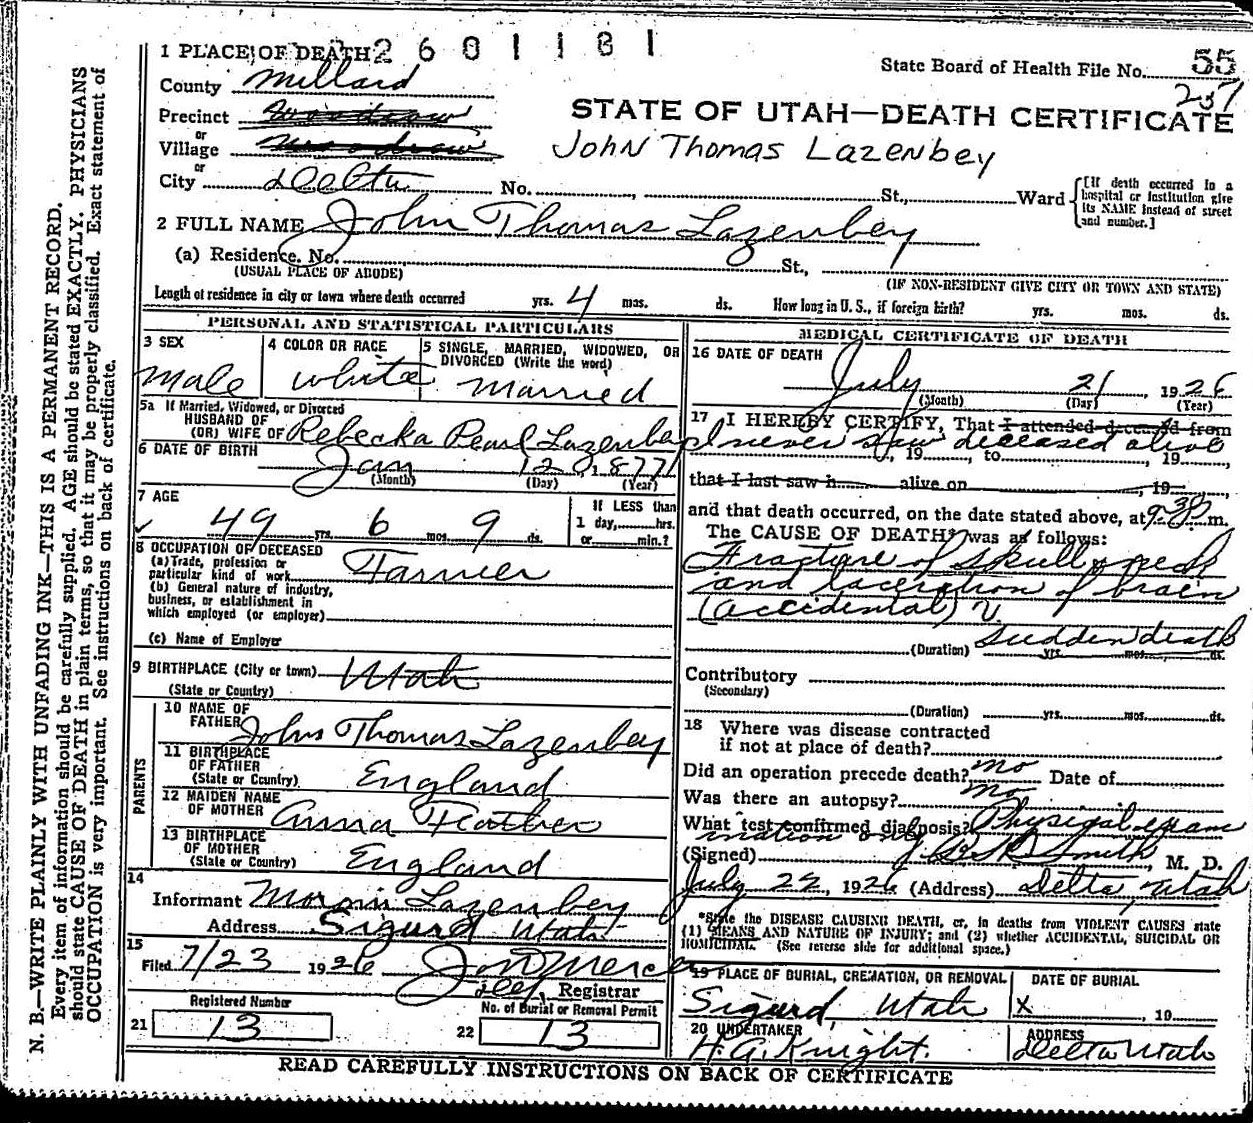 1 PLACE OF DEATH 2 6 0 1 1 8 1
State Board of Health File No. 55
257
County Millard
STATE OF UTAH—DEATH CERTIFICATE
Precinct Woodrow
or
Village Woodrow
John Thomas Lazenbey
or
City Delta No. St., Ward
[If death occurred in a hospital or institution give its NAME instead of street and number.]
2 FULL NAME John Thomas Lazenbey
(a) Residence. No. St.,
(USUAL PLACE OF ABODE) (IF NON-RESIDENT GIVE CITY OR TOWN AND STATE)
Length of residence in city or town where death occurred yrs. 4 mos. ds. How long in U. S., if foreign birth? yrs. mos. ds.
PERSONAL AND STATISTICAL PARTICULARS
3 SEX Male
4 COLOR OR RACE white
5 SINGLE, MARRIED, WIDOWED, OR DIVORCED (Write the word) Married
5a If Married, Widowed, or Divorced
HUSBAND OF
(OR) WIFE OF Rebecka Pearl Lazenbey
6 DATE OF BIRTH Jan 12 1877
(Month) (Day) (Year)
7 AGE
49 yrs. 6 mos. 9 ds.
If LESS than
1 day, hrs.
or min.?
8 OCCUPATION OF DECEASED
(a) Trade, profession or
particular kind of work Farmer
(b) General nature of industry,
business, or establishment in
which employed (or employer)
(c) Name of Employer
9 BIRTHPLACE (City or town) Utah
(State or Country)
PARENTS
10 NAME OF
FATHER John Thomas Lazenbey
11 BIRTHPLACE
OF FATHER
(State or Country) England
12 MAIDEN NAME
OF MOTHER Anna Feather
13 BIRTHPLACE
OF MOTHER
(State or Country) England
14
Informant Lazenbey
Address Sigurd Utah
15
Filed 7/23 1926
Registrar
Registered Number
21 13
No. of Burial or Removal Permit
22 13
MEDICAL CERTIFICATE OF DEATH
16 DATE OF DEATH
July 21 1926
(Month) (Day) (Year)
17 I HEREBY CERTIFY, That I attended deceased from
I never saw deceased alive
, 19 , to , 19 ,
that I last saw h alive on , 19 ,
and that death occurred, on the date stated above, at 9:30 m.
The CAUSE OF DEATH* was as follows:
Fracture of skull & neck
and laceration of brain
(accidental)
Sudden death
(Duration) yrs. mos. ds.
Contributory
(Secondary)
(Duration) yrs. mos. ds.
18 Where was disease contracted
if not at place of death?
Did an operation precede death? no Date of
Was there an autopsy? no
What test confirmed diagnosis? Physical exam
ination only
(Signed) Smith, M. D.
July 22, 1926 (Address) Delta, Utah
*State the DISEASE CAUSING DEATH, or, in deaths from VIOLENT CAUSES state
(1) MEANS AND NATURE OF INJURY; and (2) whether ACCIDENTAL, SUICIDAL OR
HOMICIDAL. (See reverse side for additional space.)
19 PLACE OF BURIAL, CREMATION, OR REMOVAL
Sigurd, Utah
DATE OF BURIAL
X , 19
20 UNDERTAKER
H. A. Knight.
ADDRESS
Delta Utah
READ CAREFULLY INSTRUCTIONS ON BACK OF CERTIFICATE
N. B.—WRITE PLAINLY WITH UNFADING INK—THIS IS A PERMANENT RECORD.
Every item of information should be carefully supplied. AGE should be stated EXACTLY. PHYSICIANS
should state CAUSE OF DEATH in plain terms, so that it may be properly classified. Exact statement of
OCCUPATION is very important. See instructions on back of certificate.